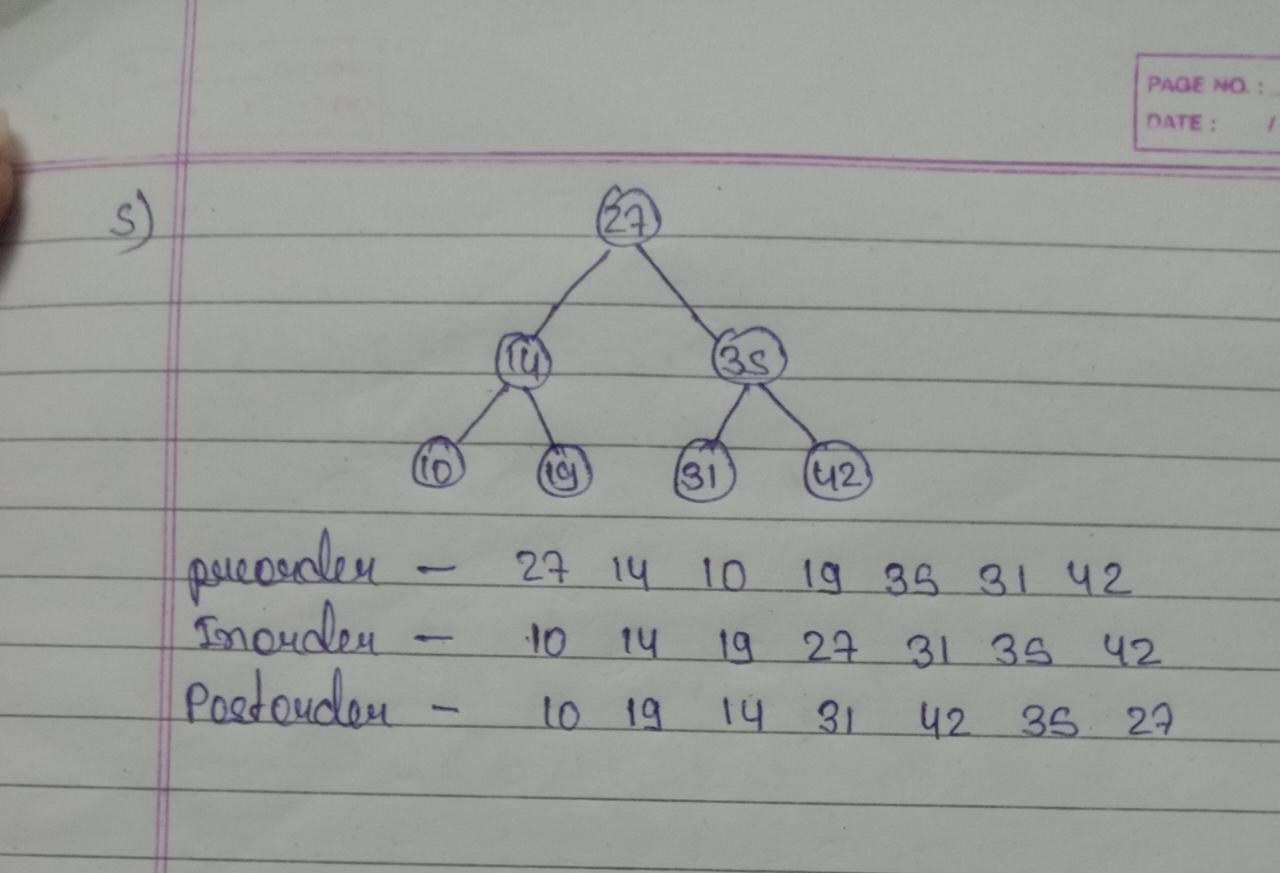 PAGE NO. :
DATE : /
5)
27
14 35
10 19 31 42
preorder - 27 14 10 19 35 31 42
Inorder - 10 14 19 27 31 35 42
Postorder - 10 19 14 31 42 35 27